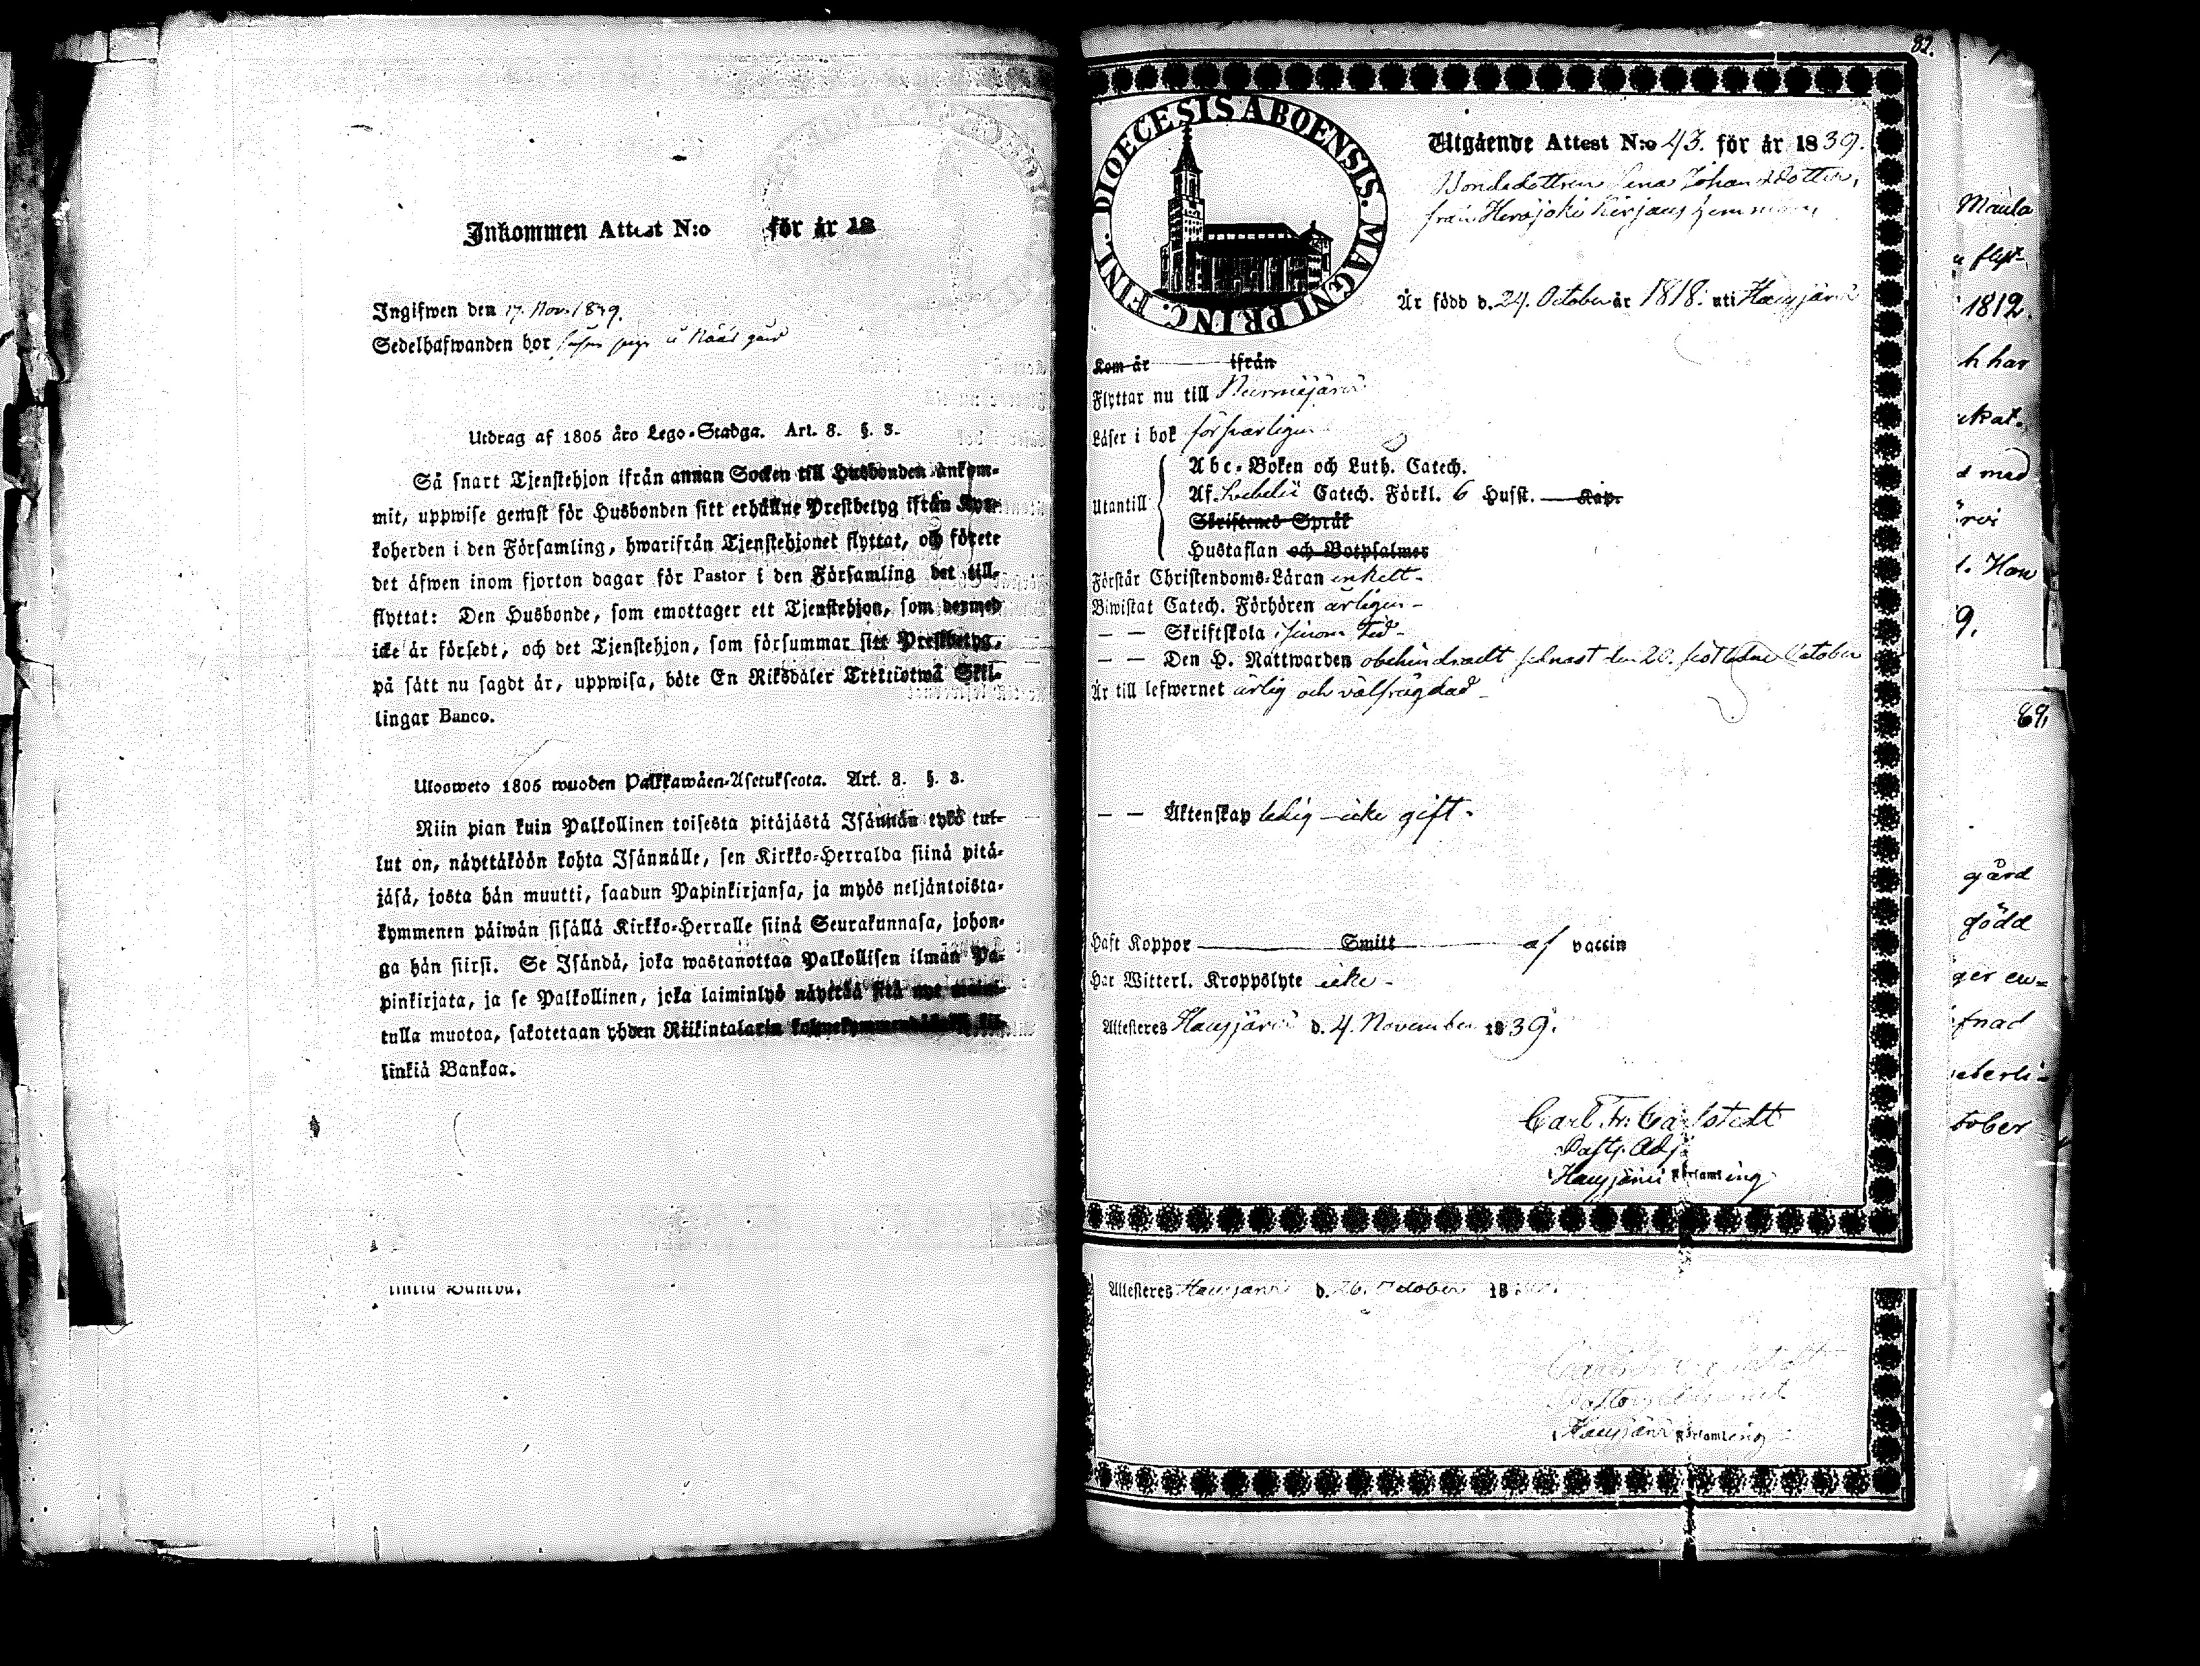 Inkommen Attest N:o för år 18
Ingifwen den 17. Nov. 1839.
Sedelhafwanden bor
Utdrag af 1805 åro Lego-Stadga. Art. 8. §. 3.
Så snart Tjenstehjon ifrån annan Socken till Husbonden ankom-
mit, uppwise genast för Husbonden sitt erhållne Prestbetyg ifrån Kyr-
koherden i den Församling, hwarifrån Tjenstehjonet flyttat, och förete
det äfwen inom fjorton dagar för Pastor i den Församling det till-
flyttat: Den Husbonde, som emottager ett Tjenstehjon, som dermed
icke är försedt, och det Tjenstehjon, som försummar sitt Prestbetyg,
på sätt nu sagdt är, uppwisa, böte En Riksdaler Trettiotwå Skil-
lingar Banco.
Uloosweto 1805 wuoden Palkkawäen-Asetuksesta. Art. 8. §. 3.
Niin pian kuin Palkollinen toisesta pitäjästä Isännän tykö tul-
lut on, näyttäköön kohta Isännälle, sen Kirkko-Herralda siinä pitä-
jäsä, josta hän muutti, saadun Papinkirjansa, ja myös neljäntoista-
kymmenen päiwän sisällä Kirkko-Herralle siinä Seurakunnasa, johon-
ga hän siirsi. Se Isändä, joka wastanottaa Palkollisen ilman Pa-
pinkirjata, ja se Palkollinen, joka laiminlyö näyttää sitä nyt
tulla muotoa, sakotetaan yhden Riikintalarin
linkiä Bankoa.
linkiä Bankoa.
82.
DIOECESIS ABOENSIS. MAGNI PRINC. FINL.
Utgående Attest N:o 43. för år 1839.
Bondedottren Lena Johansdotter,
från Herajoki Kirjaus hemman,
Är född d. 24. October år 1818. uti Hausjärvi
Kom år ifrån
Flyttar nu till Nurmijärvi
Läser i bok försvarligen
Utantill
Abc-Boken och Luth. Catech.
Af Svebelii Catech. Förkl. 6 Husst. Kap.
Skriftenes Språk
Hustaflan och Botpsalmer
Förstår Christendoms-Läran enkelt.
Biwistat Catech. Förhören årligen
— — Skriftskola i sinom tid
— — Den H. Nattwarden obehindradt senast den 20. October
Är till lefwernet ärlig och välfrägdad
— — Äktenskap ledig icke gift.
Haft Koppor Smitt af vaccin
Har Witterl. Kroppslyte icke
Attesteres Hausjärvi d. 4. November 1839.
Carl Fr. Carlstedt
Past. Adj.
Hausjärvi Församling
Attesteres Hausjärvi d. 26. October 18
Hausjärvi Församling
Maula
flyt-
1812.
h har
med
1. Hon
9.
69.
gård
född
ger en=
fnad
tober